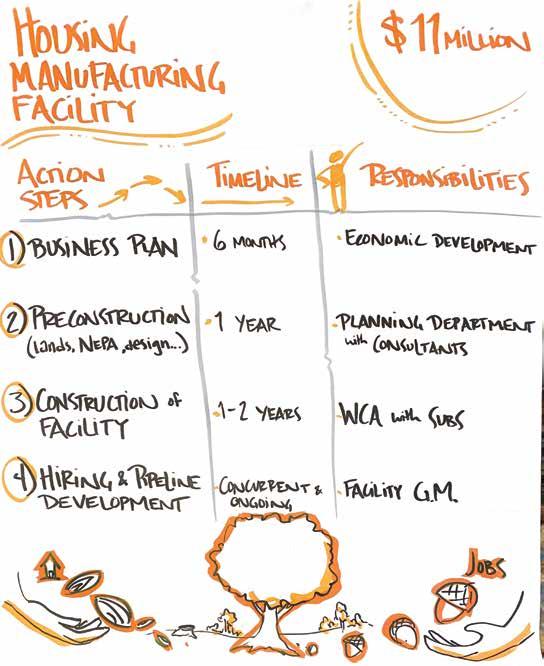 HOUSING
MANUFACTURING
FACILITY
$11 MILLION
ACTION
STEPS
TIMELINE
RESPONSIBILITIES
1) BUSINESS PLAN
• 6 MONTHS
• ECONOMIC DEVELOPMENT
2) PRECONSTRUCTION
(lands, NEPA, design...)
• 1 YEAR
• PLANNING DEPARTMENT
with CONSULTANTS
3) CONSTRUCTION of
FACILITY
• 1-2 YEARS
• WCA with SUBS
4) HIRING & PIPELINE
DEVELOPMENT
• CONCURRENT &
ONGOING
• FACILITY G.M.
JOBS